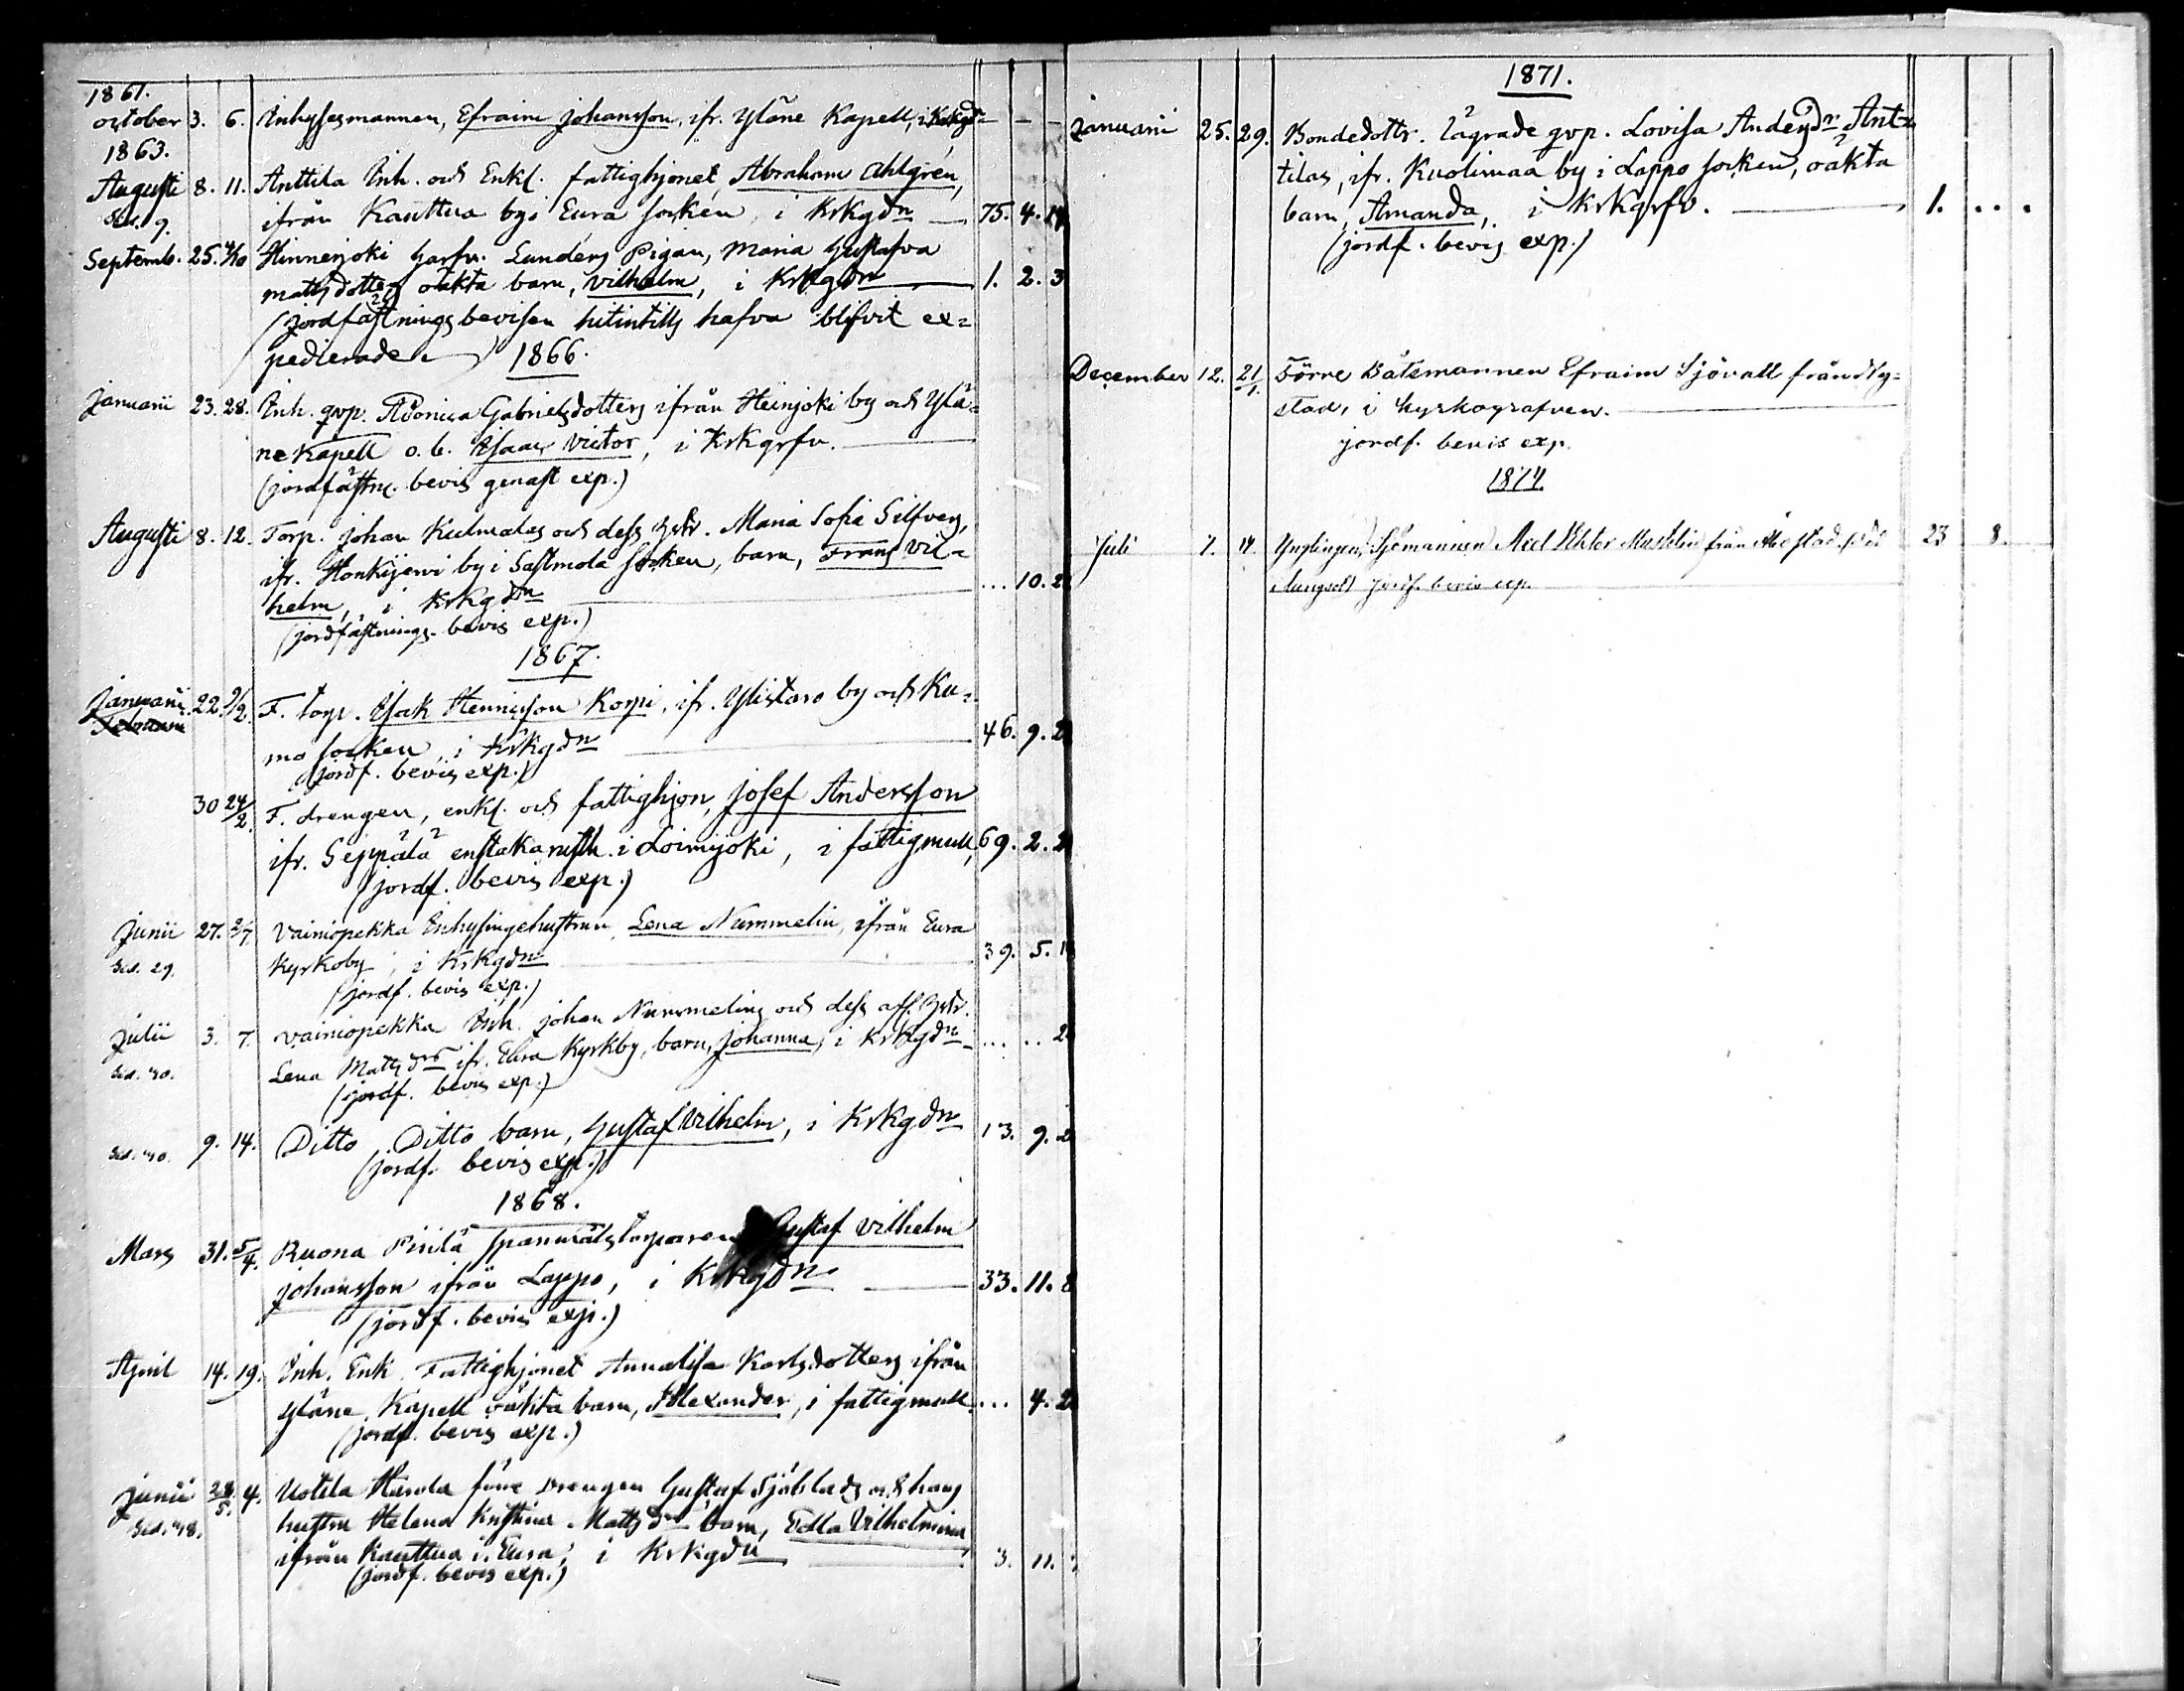 1861.
October 3. 6. Inhysesmannen, Efraim Johansson, ifr. Yläne Kapell, i KrKgdn — — —
1863.
Augusti 8. 11. Anttila Inh. och Enkl. fattighjonet, Abraham Ahlgrén,
Sid. 9. ifrån Kauttua by i Eura socken, i KrKgdn — 75. 4. 14
Septemb. 25. 4/10 Hinnerjoki Garfv. Lunders Pigan, Maria Gustafva
Mattsdotters oäkta barn, Vilhelm, i KrKgdn — 1. 2. 3
(Jordfästnings bevisen hitintills hafva blifvit ex=
pedierade.) 1866.
Januarii 23. 28. Inh. qvp. Adonica Gabrielsdotters ifrån Heinjoki by och Ylä=
ne Kapell o. b. Isaac Victor, i KrKgrfv.
(jordfästn. bevis genast exp.)
Augusti 8. 12. Torp. Johan Kulmalas och dess hstr. Maria Sofia Silfvers,
ifr. Honkijervi by i Sastmola socken, barn, Frans Vil=
helm, i KrKgdn — ... 10. 2
(jordfästnings bevis exp.)
1867.
Januarii 22. 9/2. F. torp. Isak Henricsson Korpi, ifr. Ylistaro by och Ku=
Februarii
mo socken, i KrKgdn — 46. 9. 2
(jordf. bevis exp.)
30 24/2. F. drengen, enkl. och fattighjon, Josef Andersson
ifr. Seppälä enstaka rusth. i Loimijoki, i fattigmull, 69. 2. 2
(jordf. bevis exp.)
Junii 27. 2/7. Vainiopekka Inhysingehustrun Lena Nummelin, ifrån Eura
Sid. 29. Kyrkoby, i KrKgdn — 39. 5. 1
(jordf. bevis exp.)
Julii 3. 7. Vainiopekka Inh. Johan Nummelins och dess afl. hstr.
Sid. 40. Lena Mattsdrs ifr. Eura Kyrkby, barn, Johanna, i KrKgdn — ... .. 2
(jordf. bevis exp.)
Sid. 40. 9. 14. Ditto Ditto barn, Gustaf Vilhelm, i KrKgdn 13. 9. 2
(jordf. bevis exp.)
1868.
Mars 31. 5/4. Ruona Piilä spannmålstorparen Gustaf Vilhelm
Johansson ifrån Lappo, i KrKgdn — 33. 11. 8
(jordf. bevis exp.)
April 14. 19. Inh. Enk. Fattighjonet Annalisa Karlsdotters ifrån
Yläne Kapell oäkta barn, Alexander, i fattigmull. ... 4. 2
(jordf. bevis exp.)
Junii 28/5. 4. Uotila Härola förre Drengen Gustaf Sjöblads och hans
Sid. 48. hustru Helena Kristina Mattsdrs barn, Edla Vilhelmina
ifrån Kauttua i Eura, i KrKgdn — 3. 11.
(jordf. bevis exp.)
1871.
Januarii 25. 29. Bondedottr. lägrade qvp. Lovisa Andersdrs Ant=
tilas, ifr. Kuolimaa by i Lappo socken, oäkta
barn, Amanda, i KrKgrfv. — 1. ...
(jordf. bevis exp.)
December 12. 21/1. Förre Båtsmannen Efraim Sjövall från Ny=
stad, i kyrkografven.
jordf. bevis exp.
1874
Juli 7. Ynglingen Sjömannen Axel Viktor från Åbo stad 23 8.
jordf. bevis exp.